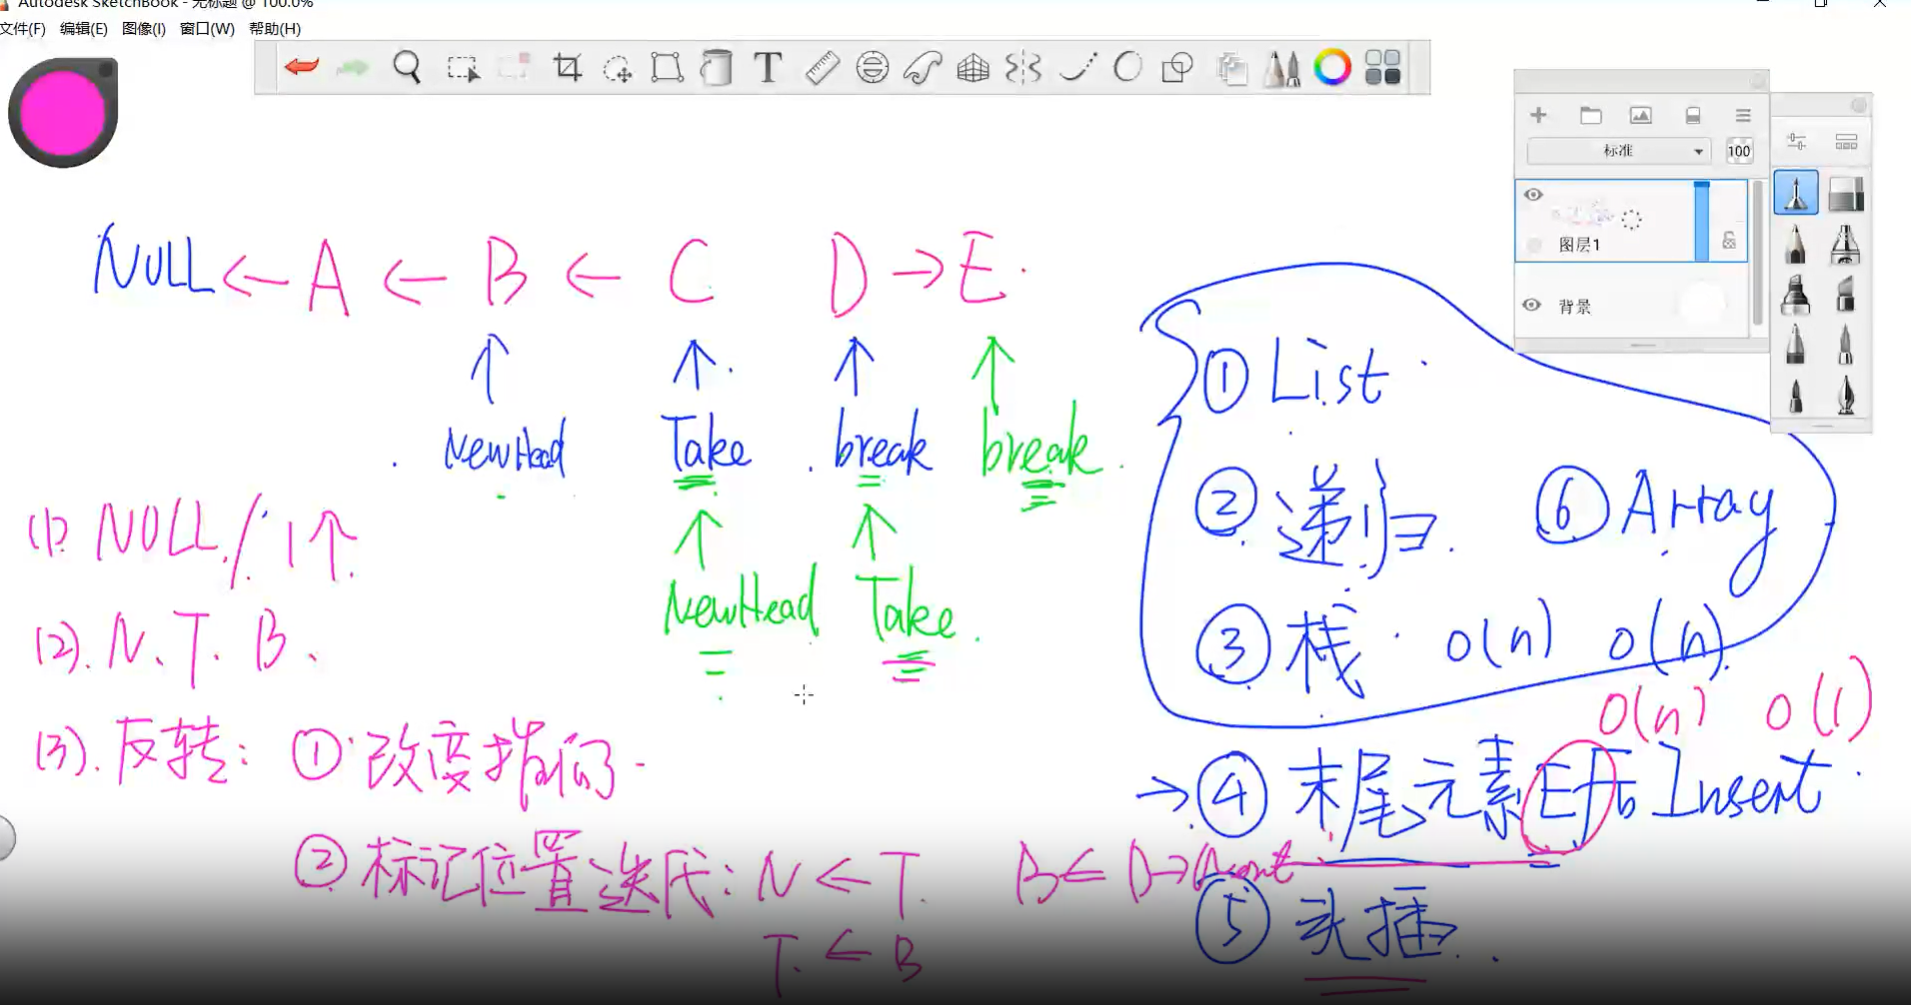 Autodesk SketchBook - 无标题 @ 100.0%
文件(F) 编辑(E) 图像(I) 窗口(W) 帮助(H)
标准 100
图层1
背景
NULL ← A ← B ← C D → E
NewHead Take break break
NewHead Take
(1). NULL / 1个
(2). N、T、B、
(3). 反转: ① 改变指向
② 标记位置迭代: N ← T B ← B→Next
T ← B
① List
② 递归 ⑥ Array
③ 栈 O(n) O(n)
O(n) O(1)
→ ④ 末尾元素 Insert
⑤ 头插